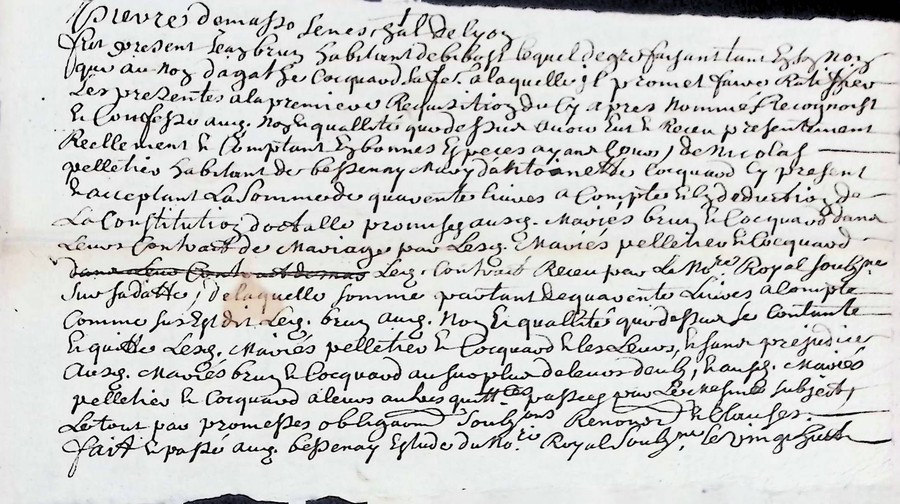 pievres demasso seneschal de lyon
fut present Jean brun habitant de bibost lequel de gre faisant tant En son Nom
que au Nom d'agathe Cocquard sa fe. a laquelle Il promet faire Ratiffier
Les presentes a la premiere Requisition du Cy apres Nomme Recognoist
& Confesse ausd. Nom & quallité que dessus avoir Eut & Receu presentement
Reellement & Comptant En bonnes Especes ayant Cours, de Nicolas
pelletier habitant de bessenay Mary d'Antoinette Cocquard Cy present
& acceptant La Somme de quarente livres a Compte & En deduction de
La Constitution dottalle promise ausd. Mariés brun & Cocquard dans
Leurs Contract de Mariage par Lesd. Mariés pelletier & Cocquard
dans leur Contract de mar Led. Contract Receu par Le Nore. Royal soubzne
Sur sa datte, De laquelle somme partant de quarente Livres a Compte
Comme sus Est dit Led. brun aud. Nom & quallité que dessus se Contante
En quitte Lesd. Mariés pelletier & Cocquard & les Leurs, & sans prejudice
Ausd. Mariés brun & Cocquard au surplus de leurs deub, & ausd. Mariés
pelletier & Cocquard a leurs autres quittces passees pour Le Mesme subject,
Le tout par promesses obligaon. Soubzons Renonon. & Clauses.
fait & passé aud. bessenay Estude du No.re Royal Soubz.ne Le vingt huit